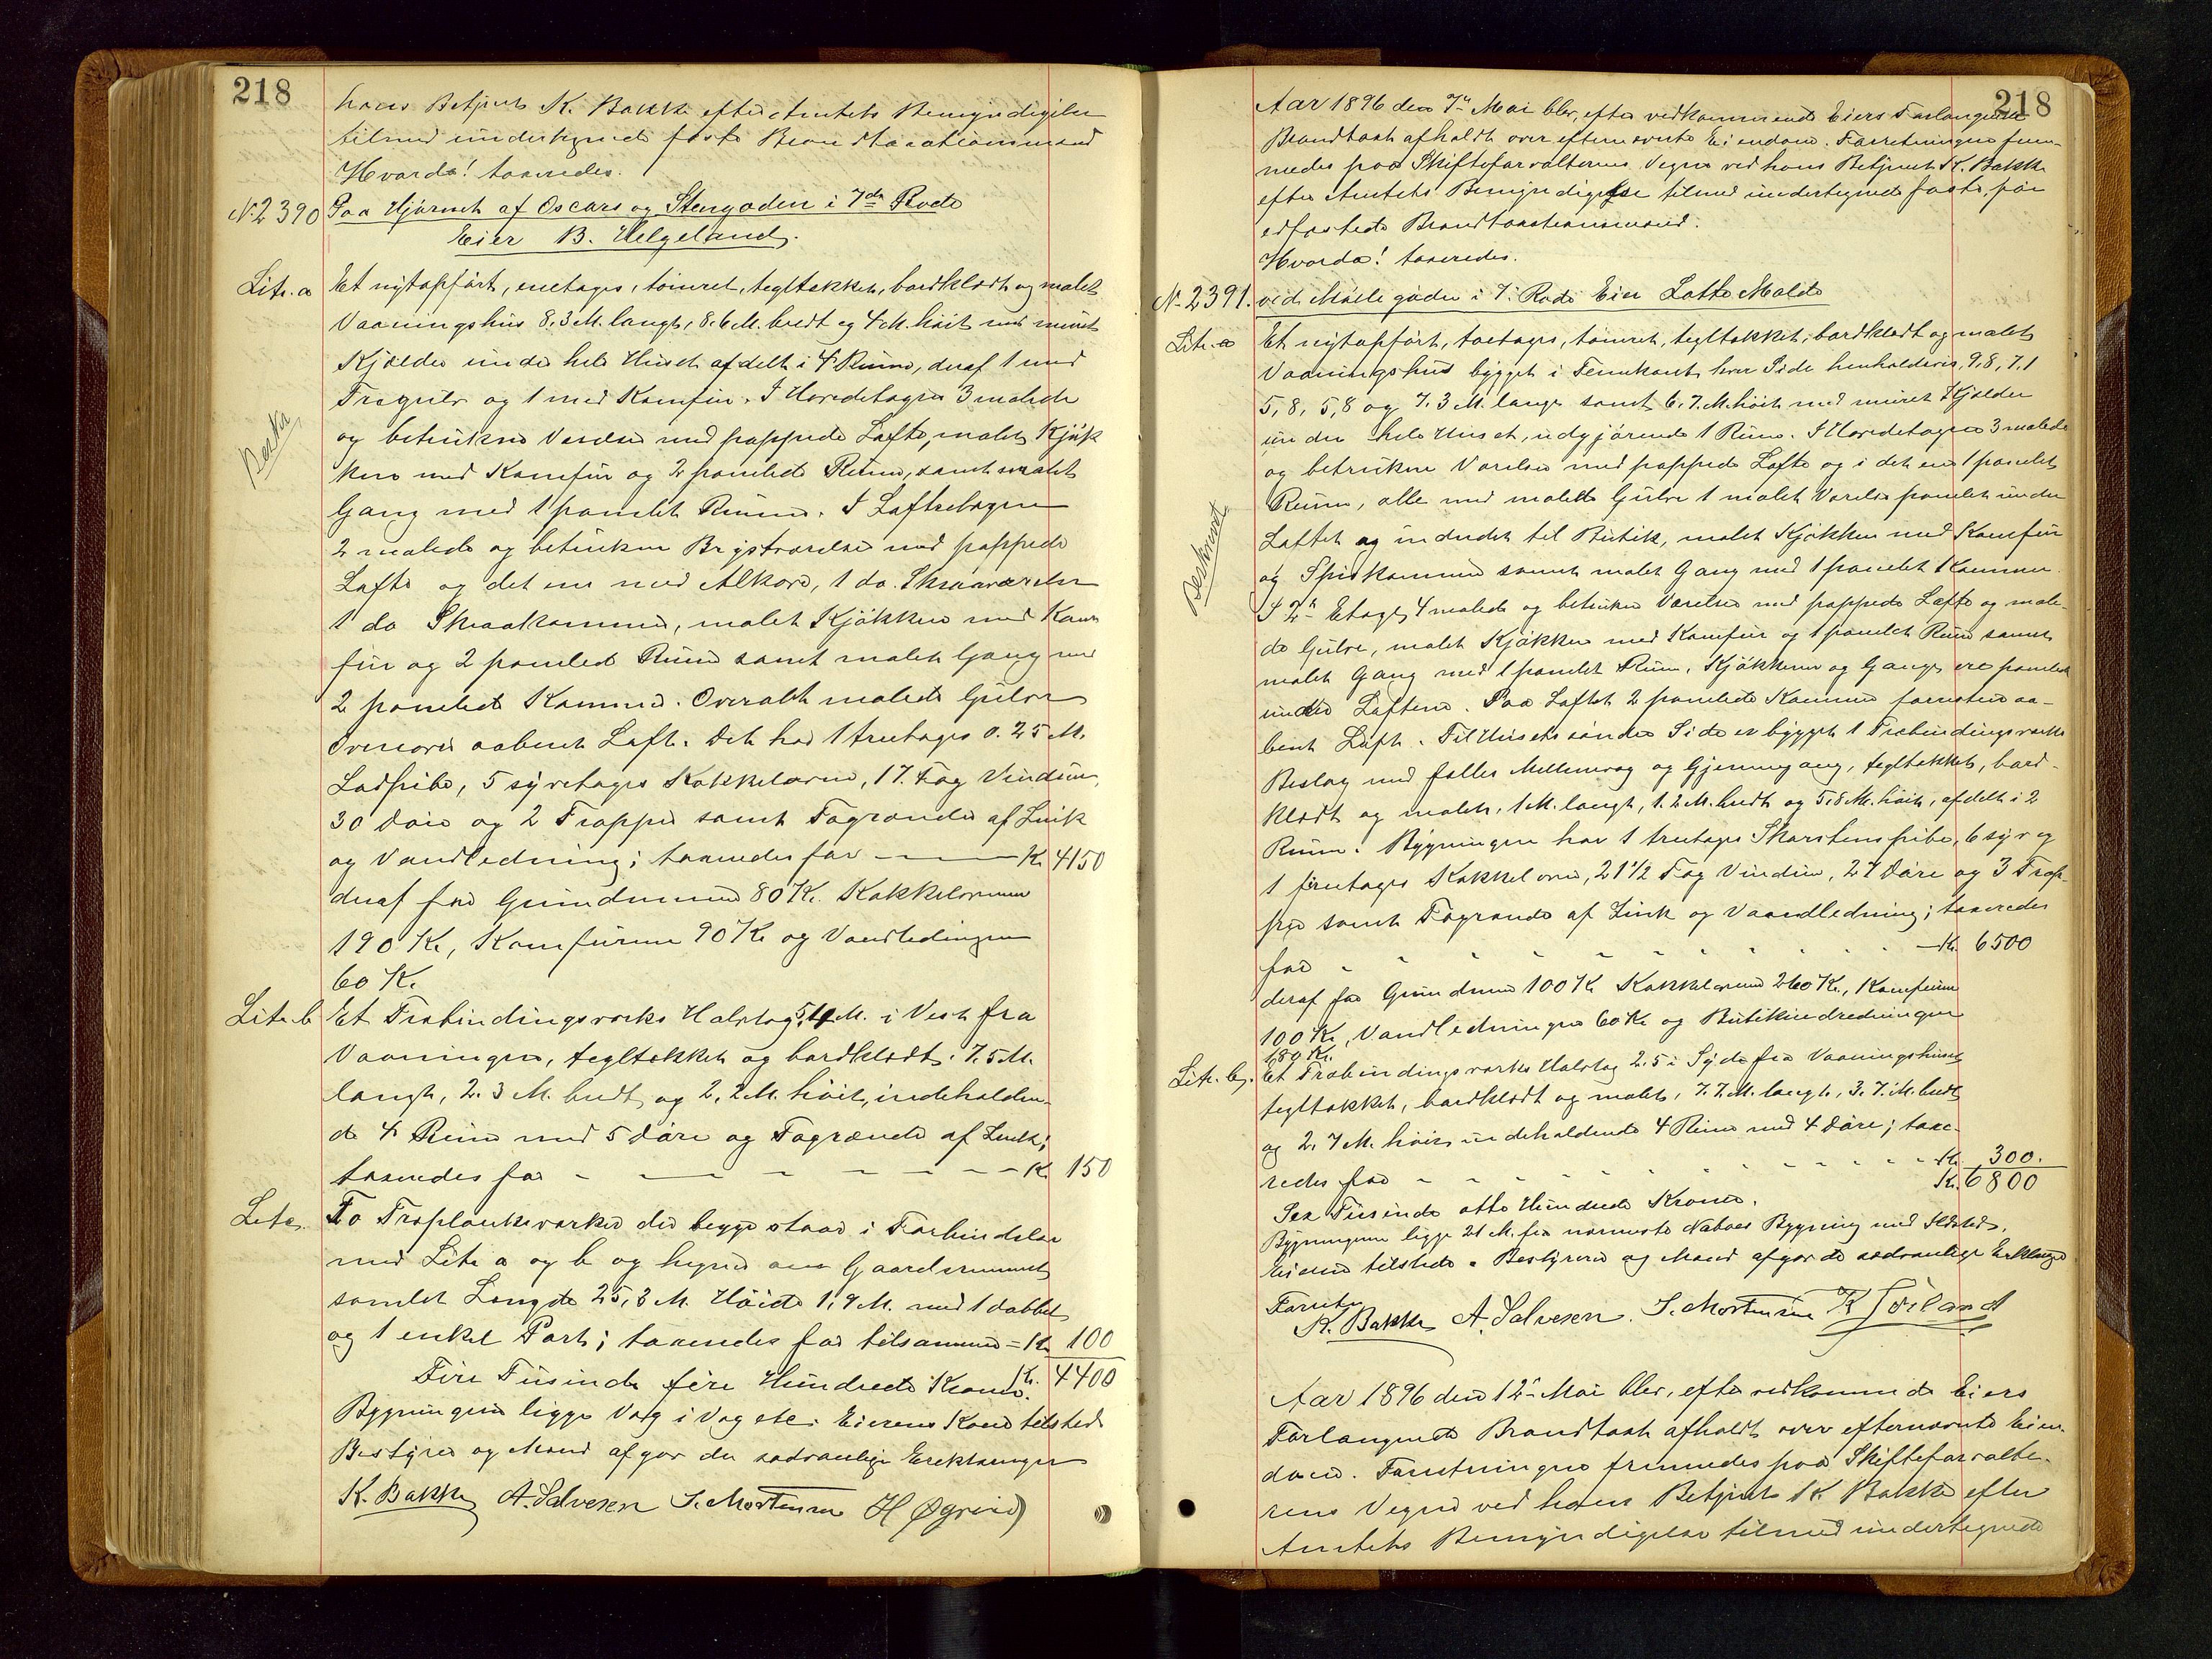 218
hans Betjent K. Bakke efter Amtets Bemyndigelse
tilmed undertegnede faste Brandtaxationsmænd
Hvorda! taxeredes.
No 2390 Paa Hjørnet af Oscars og Stengaden i 7de Rode
Eier B. Helgeland.
Litr. a Et nytopført, enetages, tømret, tegltækket, bordklædt og malet
Vaaningshus 8,3 M. langt, 8.6 M. bredt og 4 M. høit med muret
Kjælder under hele Huset afdelt i 4 Rum, deraf 1 med
Trægulv og 1 med Komfur. I Hovedetagen 3 malede
Beskr.
og betrukne Værelser med pappede Lofte, malet Kjøk
ken med Komfur og 2 panelede Rum, samt malet
Gang med 1 panelet Rum. I Loftsetagen
2 malede og betrukne Brystværelser med pappede
Lofte og det ene med Alkove, 1 do. Skraaværelse
1 do Skraakammer, malet Kjøkken med Kom
fur og 2 panelede Rum samt malet Gang med
2 panelede Kammer. Overalt malede Gulve
Ovenover aabent Loft. Det har 1 treetages 0.25 M.
Lodpibe, 5 syvetages Kakkelovne, 17. Fag Vinduer,
30 Døre og 2 Trapper samt Tagrender af Zink
og Vandledning; taxeredes for — Kr 4150
deraf for Grundmuren 80 Kr. Kakkelovnene
190 Kr, Komfurene 90 Kr og Vandledningen
60 Kr.
Litr. b Et Træbindingsværks Halvtag 5,4 M. i Vest fra
Vaaningen, tegltækket og bordklædt. 7.5 M.
langt, 2.3 M. bredt og 2,2 M. høit, indeholden-
de 4 Rum med 5 Døre og Tagrende af Zink;
taxeredes for - — - - - - Kr 150
Litr c. To Træplankeværker der begge staar i Forbindelse
med Litr a og b og hegner om Gaardsrummet
samlet Længde 25,3 M. Høide 1,9 M. med 1 dobbel
og 1 enkel Port; taxeredes for tilsammen = Kr 100
Fire Tusinde fire Hundrede Kroner. Kr. 4400
Bygningerne ligge Væg i Væg etc. Eierens Kone tilstede
Bestyrer og Mænd afgav de sædvanlige Erklæringer
K. Bakke A. Salvesen S. Mortensen H Øgreid
218
Aar 1896 den 7de Mai blev, efter vedkommende Eiers Forlangende
Brandtaxt afholdt over efternævnte Eiendom. Forretningen frem-
medes paa Skifteforvalterens Vegne ved hans Betjent K. Bakke
efter Amtets Bemyndigelse tilmed undertegnede faste, for
edfæstede Brandtaxationsmænd.
Hvorda! taxeredes.
No 2391. ved Møllegaden i 7. Rode Eier Lotte Malde
Litr. a Et nytopført, toetages, tømret, tegltækket, bordklædt og malet
Vaaningshus bygget i Femkant hver Side henholdsvis 9,8, 7,1
5,8, 5,8 og 7.3 M. lange samt 6.7. M. høit med muret Kjælder
under hele Huset, udgjørende 1 Rum. I Hovedetagen 3 malede
og betrukne Værelser med pappede Lofte og i det ene 1 panelet
Rum, alle med malede Gulve 1 malet Værelse panelet under
Beskrevet
Loftet og indredet til Butik, malet Kjøkken med Komfur
og Spiskammer samt malet Gang med 1 panelet Kammer.
I 2den Etage 4 malede og betrukne Værelser med pappede Lofte og male-
de Gulve, malet Kjøkken med Komfur og 1 panelet Rum samt
malet Gang med 1 panelet Rum. Kjøkkenerne og Gange ere panelede
under Loftene. Paa Loftet 2 panelede Kammer forresten aa-
bent Loft. Til Husets søndre Side er bygget 1 Træbindingsværks
Beslag med fælles Mellemvæg og Gjennemgang, tegltækket, bord-
klædt og malet. 1 M. langt, 1.2 M. bredt og 5,8 M. høit, afdelt i 2
Rum. Bygningen har 1 treetages Skorstenspibe, 6 syv og
1 fireetages Kakkelovne, 21 1/2 Fag Vinduer, 27 Døre og 3 Trap-
per samt Tagrende af Zink og Vandledning; taxeredes
for - - - - - - - Kr. 6500
deraf for Grundmur 100 Kr Kakkelovnene 260 Kr., Komfurene
100 Kr, Vandledningen 60 Kr og Butikindredningen
180 Kr.
Litr. b. Et Træbindingsværks Halvtag 2.5 i Syd fra Vaaningshuset
tegltækket, bordklædt og malet, 7.7. M. langt, 3.7. M. bredt
og 2.7 M. høit indeholdende 4 Rum med 4 Døre; taxe-
redes for - - - - - - - Kr 300.
Kr. 6800
Sex Tusinde otte Hundrede Kroner.
Bygningerne ligge 21 M. fra nærmeste Naboes Bygning med Ildsted.
Eieren tilstede. Bestyreren og Mænd afgav de sædvanlige Erklæringer
Forrettet
K. Bakke A. Salvesen. S. Mortensen K Førland
Aar 1896 den 12te Mai blev, efter vedkommende Eiers
Forlangende Brandtaxt afholdt over efternævnte Eien-
dom. Forretningen fremmedes paa Skifteforvalte-
rens Vegne ved hans Betjent K Bakke efter
Amtets Bemyndigelse tilmed undertegnede